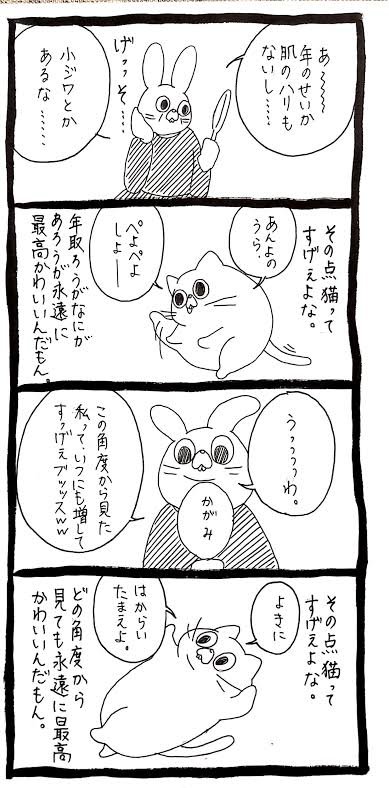 あ〜〜〜
年のせいか
肌のハリも
ないし……
げっっそ…
小ジワとか
あるな……
その点猫って
すげぇよな。
あんよの
うら、
ぺよぺよ
しよ――
年取ろうがなにが
あろうが永遠に
最高かわいいんだもん。
うっっっっわ。
かがみ
この角度から見た
私っていつにも増して
すっげぇブッッスww
その点猫って
すげぇよな。
よきに
はからい
たまえよ。
どの角度から
見ても永遠に最高
かわいいんだもん。